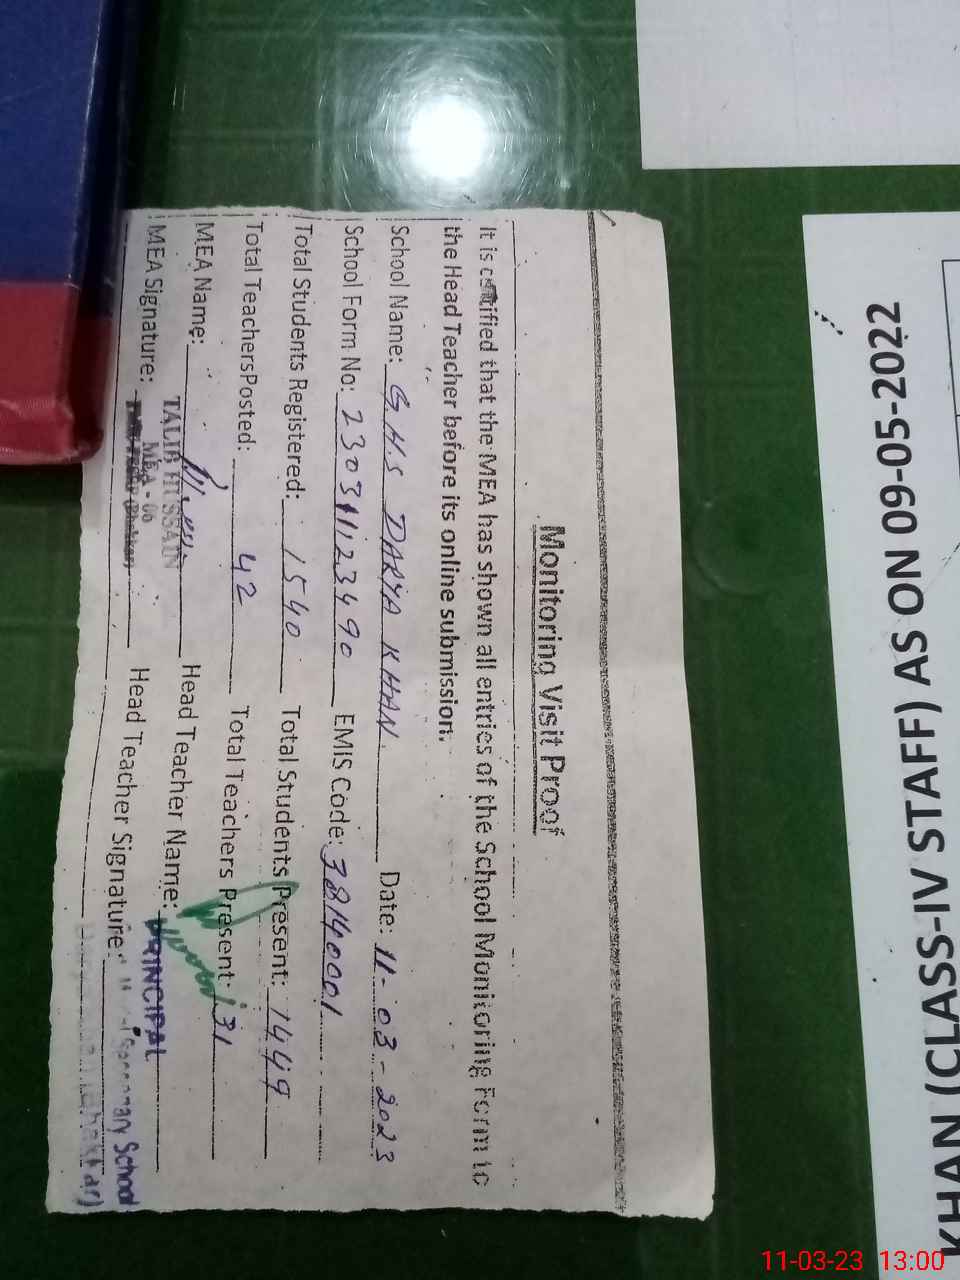 Monitoring Visit Proof
It is certified that the MEA has shown all entries of the School Monitoring Form to
the Head Teacher before its online submission.
School Name: G.H.S DARYA KHAN. Date: 11-03-2023
School Form No: 23031123490 EMIS Code: 38140001
Total Students Registered: 1540 Total Students Present: 1449
Total TeachersPosted: 42 Total Teachers Present: 31
MEA Name: Head Teacher Name:
TALIB HUSSAIN PRINCIPAL
MEA Signature: Head Teacher Signature:
MEA - 06 Secondary School
KHAN (CLASS-IV STAFF) AS ON 09-05-2022
11-03-23 13:00